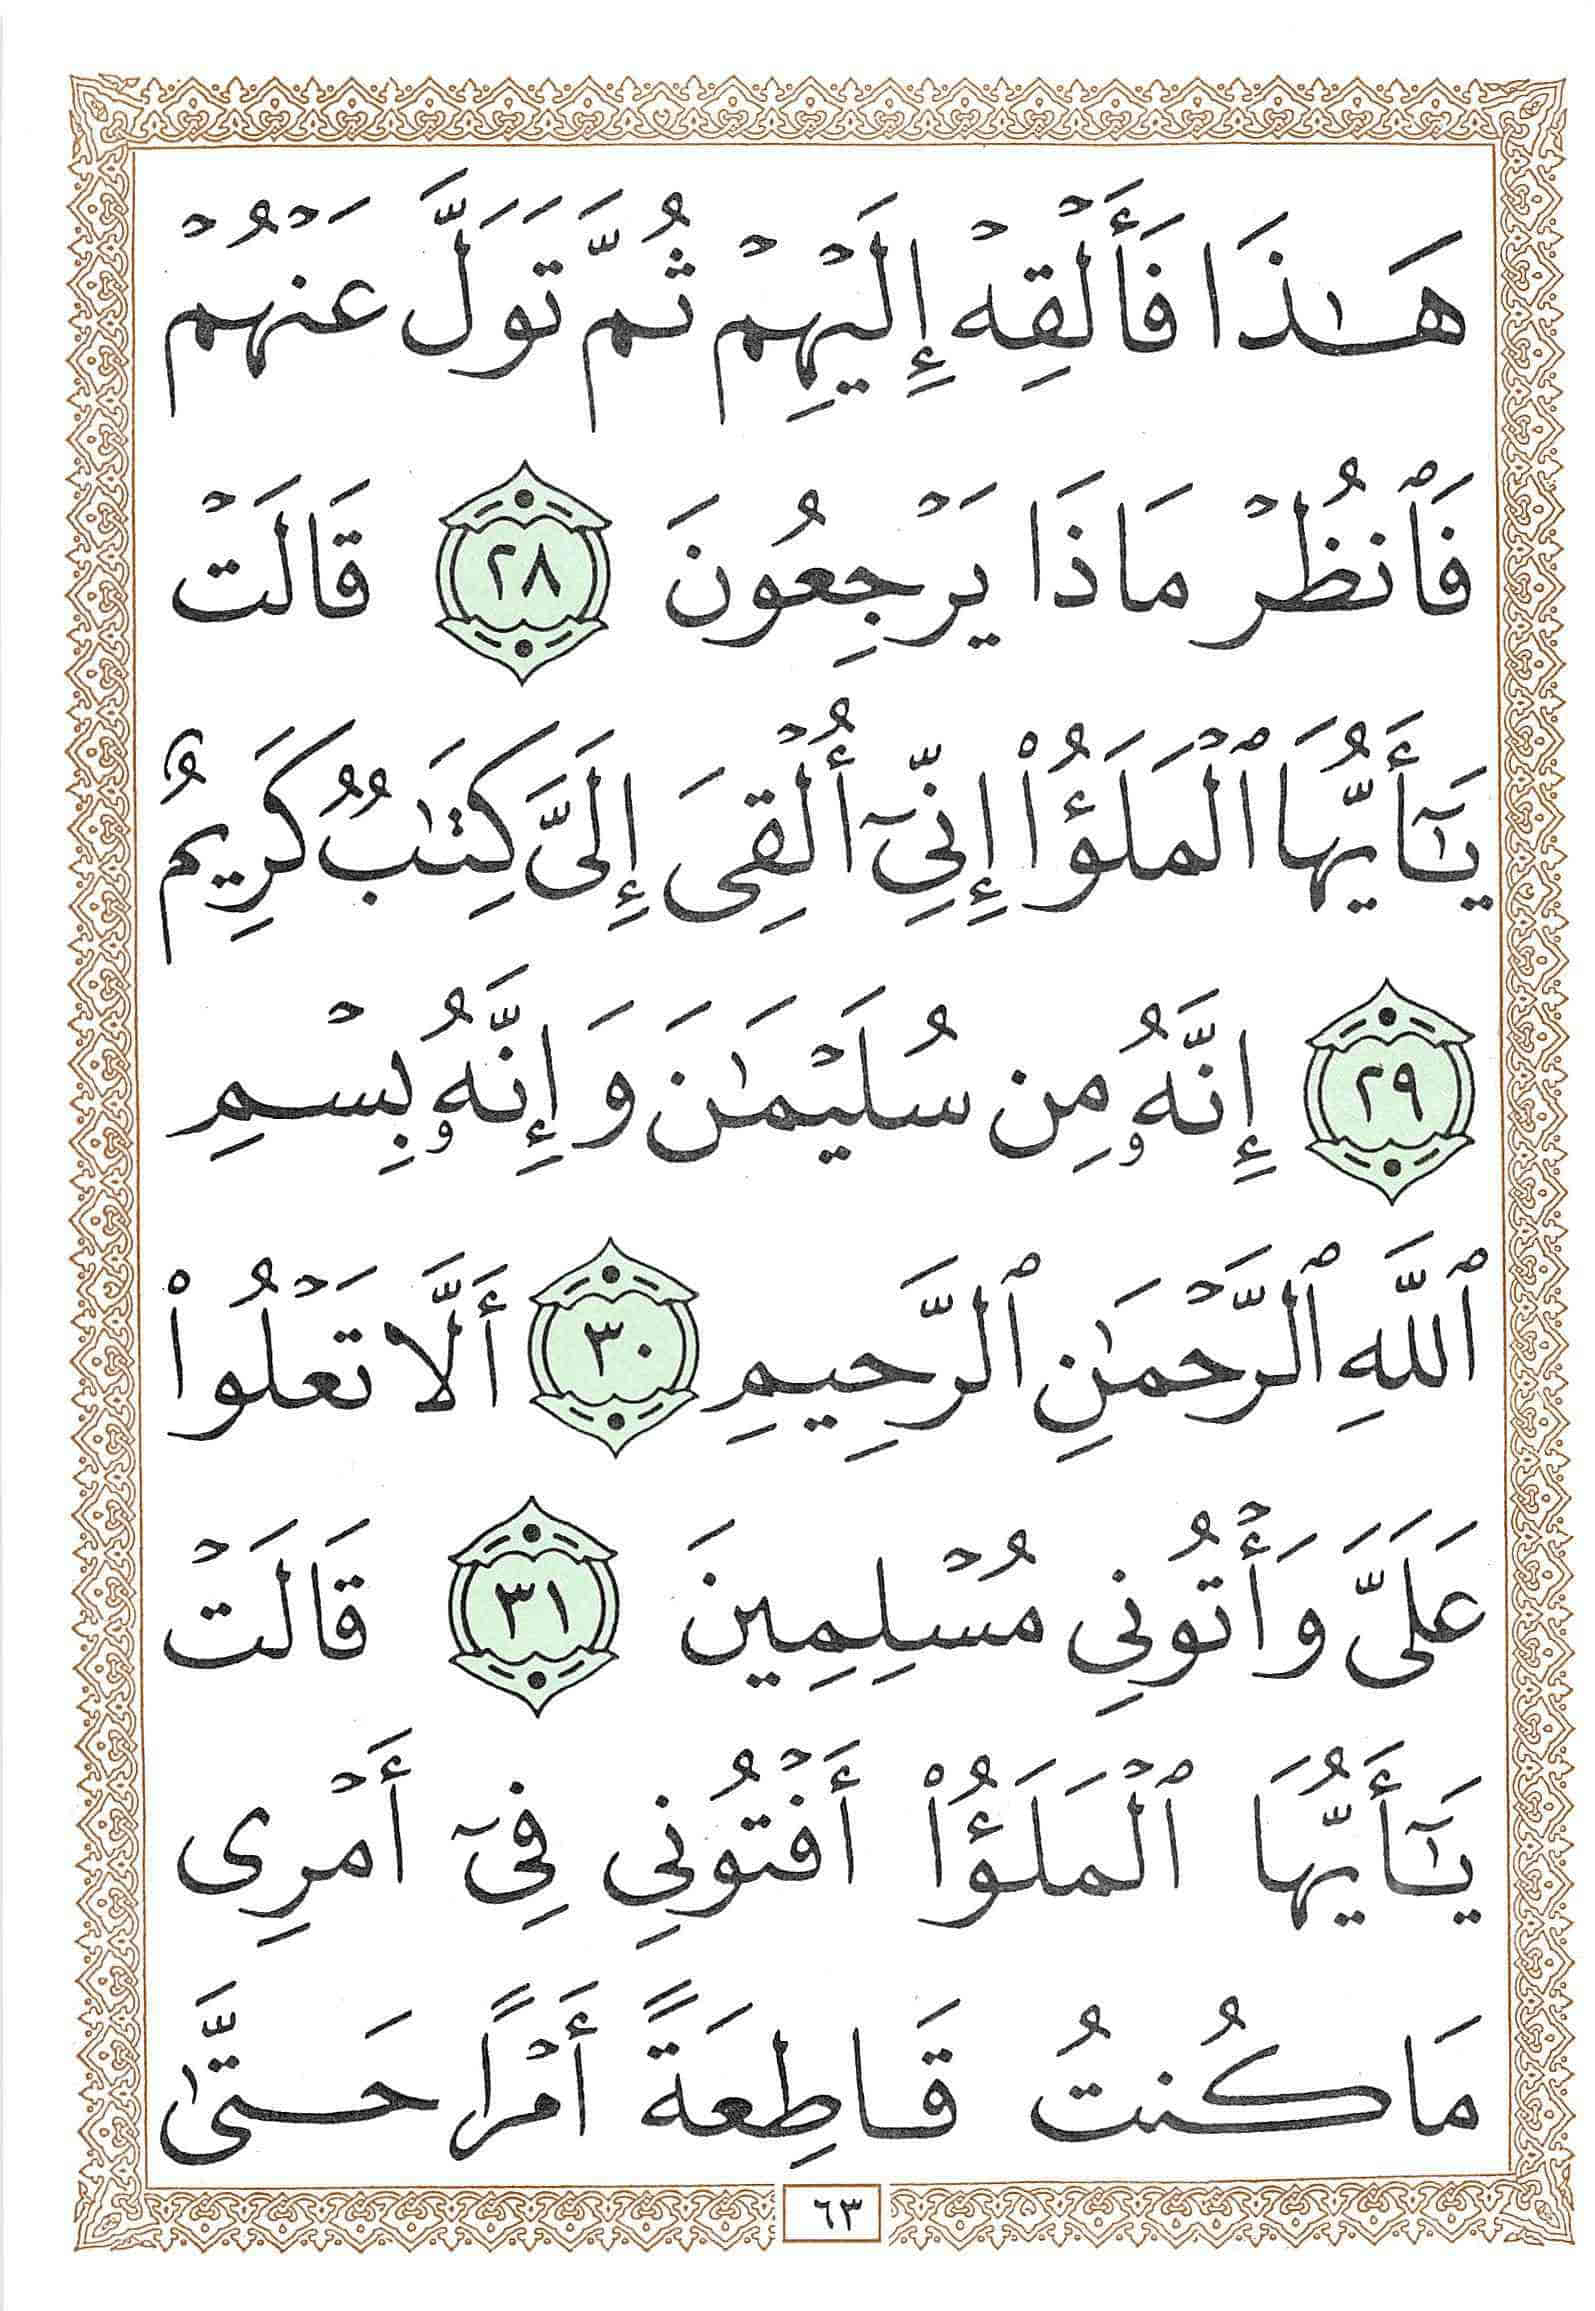 هَـٰذَا فَأَلْقِهْ إِلَيْهِمْ ثُمَّ تَوَلَّ عَنْهُمْ
فَٱنظُرْ مَاذَا يَرْجِعُونَ ٢٨ قَالَتْ
يَـٰٓأَيُّهَا ٱلْمَلَؤُا۟ إِنِّىٓ أُلْقِىَ إِلَىَّ كِتَـٰبٌ كَرِيمٌ
٢٩ إِنَّهُۥ مِن سُلَيْمَـٰنَ وَإِنَّهُۥ بِسْمِ
ٱللَّهِ ٱلرَّحْمَـٰنِ ٱلرَّحِيمِ ٣٠ أَلَّا تَعْلُوا۟
عَلَىَّ وَأْتُونِى مُسْلِمِينَ ٣١ قَالَتْ
يَـٰٓأَيُّهَا ٱلْمَلَؤُا۟ أَفْتُونِى فِىٓ أَمْرِى
مَا كُنتُ قَاطِعَةً أَمْرًا حَتَّىٰ
٦٣